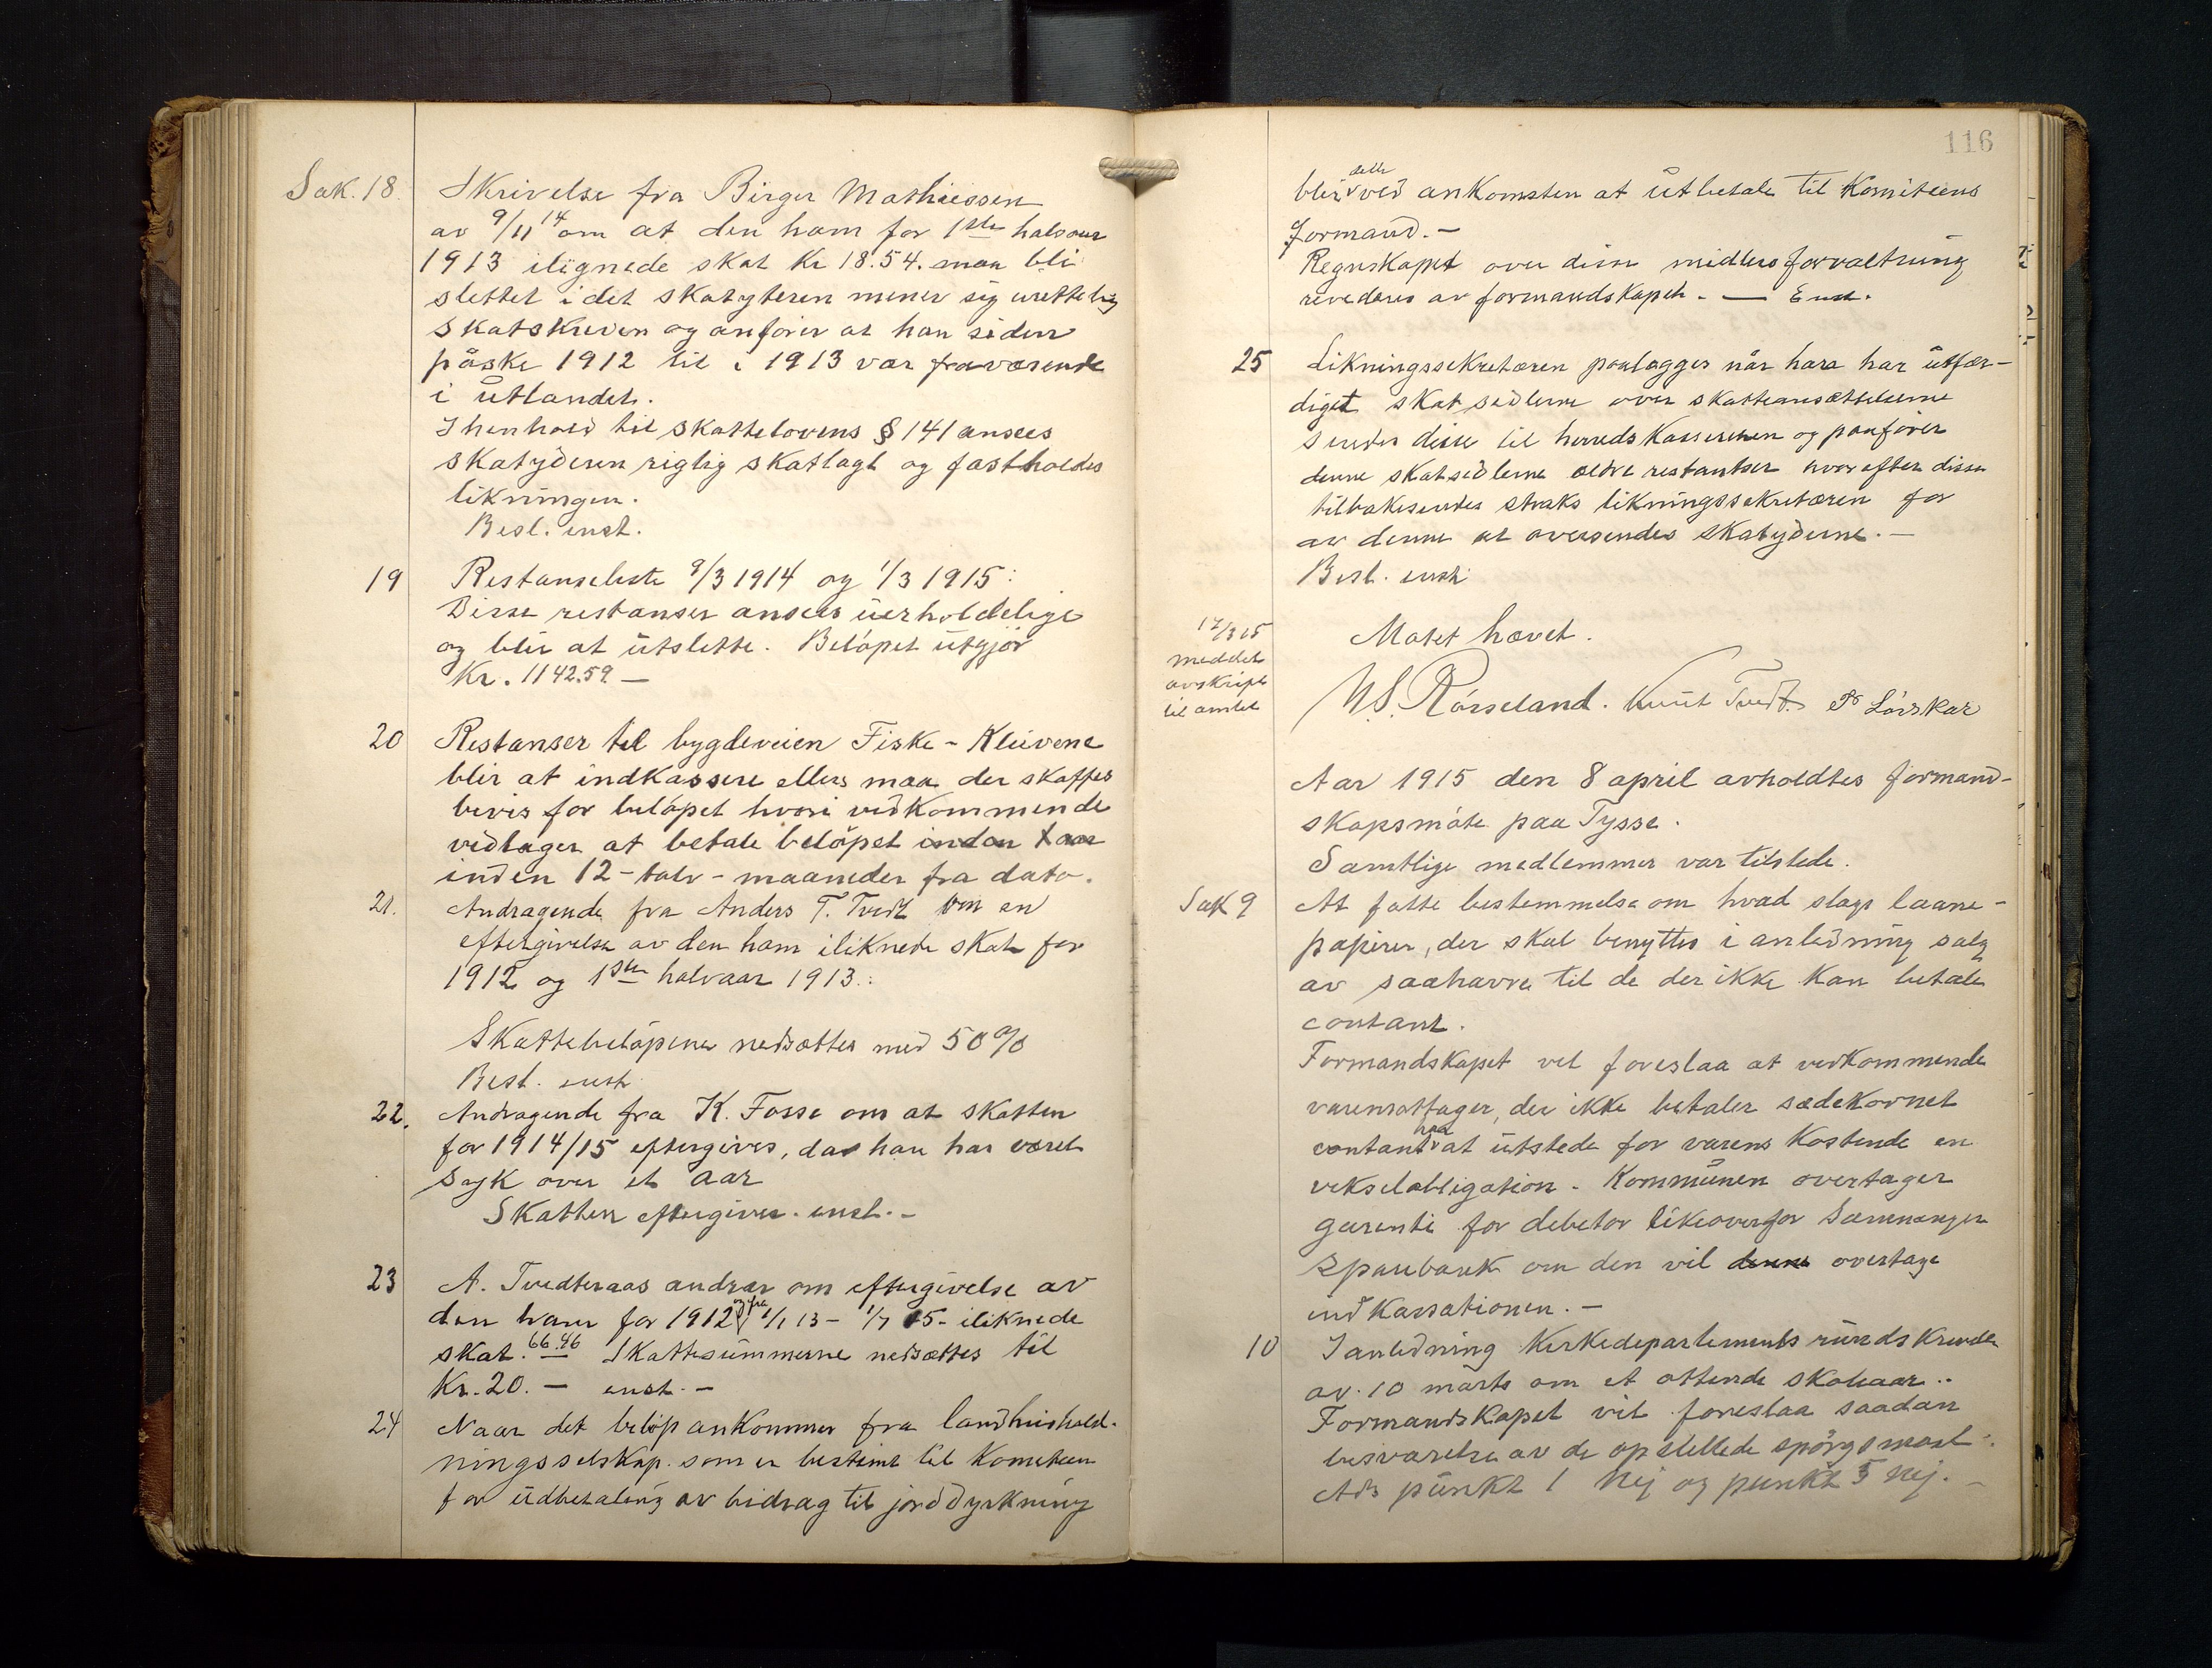 Sak. 18. Skrivelse fra Birger Mathiessen
av 9/11 14 om at den ham for 1ste halvaar
1913 ilignede skat Kr 18.54. maa bli
slettet idet skatyteren mener sig urettelig
skatskreven og anfører at han siden
påske 1912 til i 1913 var fraværende
i utlandet.
I henhold til skattelovens § 141 ansees
skatyderen rigtig skatlagt og fastholdes
likningen.
Besl. enst.
19 Restanseliste 9/3 1914 og 1/3 1915:
Disse restanser ansees uerholdelige
og blir at utslette. Beløpet utgjør
Kr. 1142.59 —
20 Restanser til bygdeveien Fiske - Kleivene
blir at indkassere ellers maa der skaffes
bevis for beløpet hvori vedkommende
vedtager at betale beløpet inden 1 aar
inden 12 - tolv - maaneder fra dato.
21. Andragende fra Anders T. Tvedt om en
eftergivelse av den ham iliknede skat for
1912 og 1ste halvaar 1913.:
Skattebeløpene nedsættes med 50 %
Besl. enst.
22. Andragende fra K. Fosse om at skatten
for 1914/15 eftergives, da han har været
syk over et aar
Skatten eftergives. enst. -
23 A. Tvedteraas andrar om eftergivelse av
den ham for 1912 og fra 1/1 13 - 1/7 15 - iliknede
skat. 66.46 Skattesummerne nedsættes til
Kr. 20. — enst. -
24 Naar det beløp ankommer fra landhushold-
ningsselskap. som er bestemt til Komiteen
for udbetaling av bidrag til jorddyrkning
116
blir dette ved ankomsten at utbetale til Komiteens
formand. -
Regnskapet over disse midlers forvaltning
revideres av formandskapet. — Enst.
25 Likningssekretæren paalægges når hara har utfær-
diget skatsedlerne over skatteansættelserne
sendes disse til herredskassereren og paafører
denne skatsedlerne ældre restantser hvorefter disse
tilbakesendes straks likningssekretæren for
av denne at oversendes skatyderne. —
Besl. enst.
17/3 15
meddelt
avskript
til amtet
Møtet hævet.
N. S. Rørseland. Knut Tvedt. P Lønskar
Aar 1915 den 8 april avholdtes formand-
skapsmøte paa Tysse.
Samtlige medlemmer var tilstede.
Sak 9 At fatte bestemmelse om hvad slags laane-
papirer, der skal benyttes i anledning salg
av saahavre til de der ikke kan betale
contant.
Formandskapet vil foreslaa at vedkommende
varemottager, der ikke betaler sædekornet
contant har at utstede for varens kostende en
vekselobligation. Kommunen overtager
garanti for debetor likeoverfor Samnanger
Sparebank om den vil denne overtage
indkassationen. —
10 I anledning Kirkedepartements rundskrivelse
av 10 marts om et ottende skoleaar..
Formandskapet vil foreslaa saadan
besvarelse av de opstillede spørgsmaal:
Ads punkt 1 Nej og punkt 5 nej. —